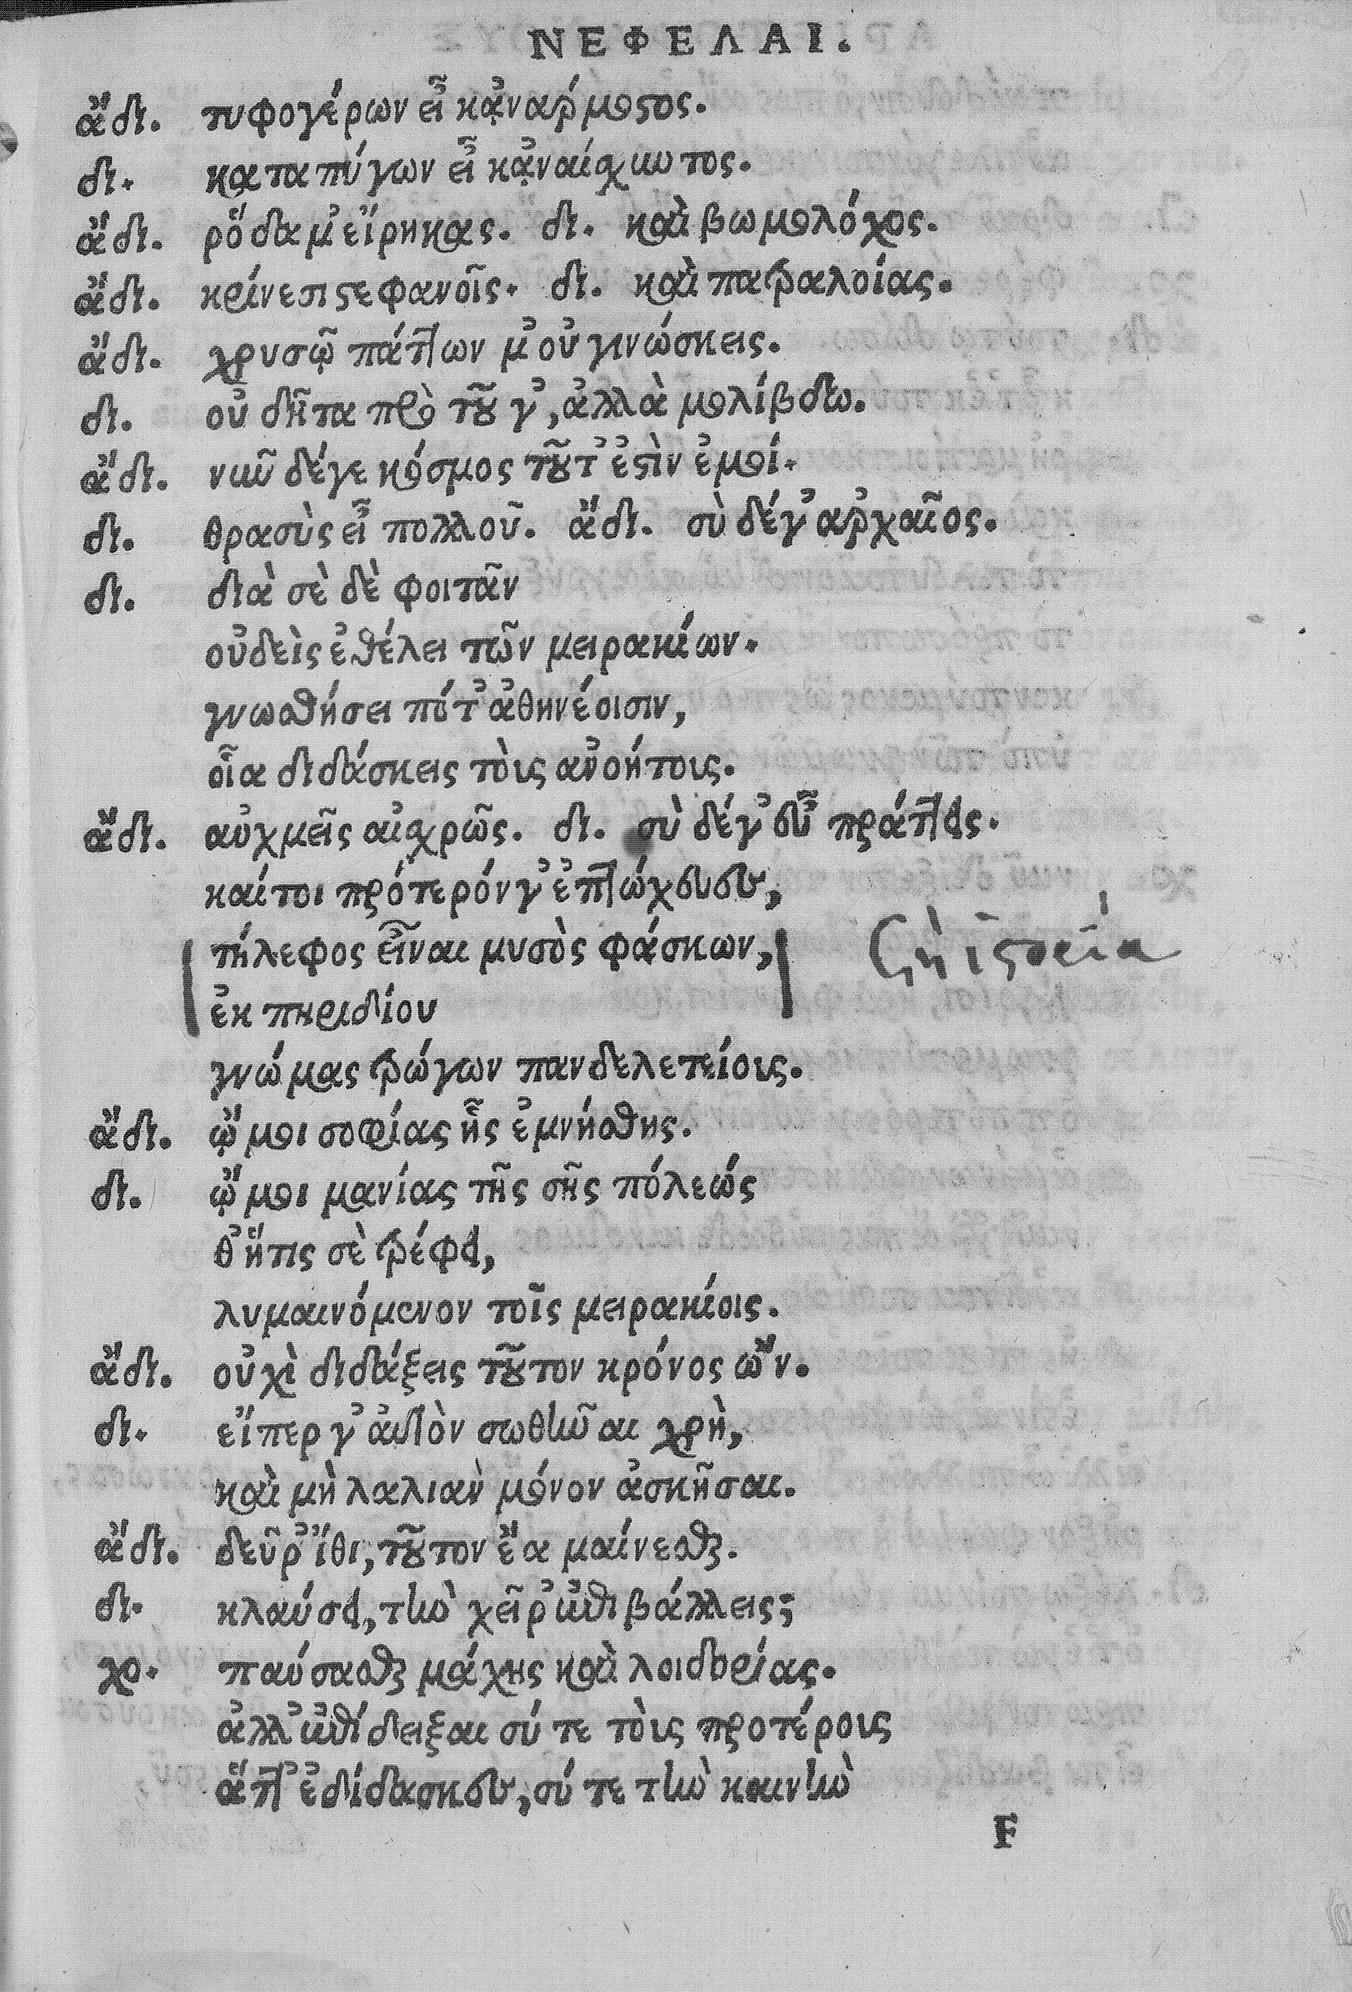 ΝΕΦΕΛΑΙ.
ἄδι. τυφογέρων εἶ κἀνάρμοστος.
δι. καταπύγων εἶ κἀναίσχυντος.
ἄδι. ῥόδα μ' εἴρηκας. δι. καὶ βωμολόχος.
ἄδι. κρίνεσι στεφανοῖς. δι. καὶ πατραλοίας.
ἄδι. χρυσῷ πάττων μ' οὐ γινώσκεις.
δι. οὐ δῆτα πρὸ τοῦ γ', ἀλλὰ μολίβδῳ.
ἄδι. νῦν δέγε κόσμος τοῦτ' ἐστὶν ἐμοί.
δι. θρασὺς εἶ πολλοῦ. ἄδι. σὺ δέγ' ἀρχαῖος.
δι. διὰ σὲ δὲ φοιτᾶν
οὐδεὶς ἐθέλει τῶν μειρακίων.
γνωσθήσει πότ' ἀθηνέοισιν,
οἷα διδάσκεις τοὺς ἀνοήτους.
ἄδι. αὐχμεῖς αἰσχρῶς. δι. σὺ δέγ' εὖ πράττεις.
καίτοι πρότερόν γ' ἐπτώχευες,
τήλεφος εἶναι μυσὸς φάσκων,
ἐκ πηριδίου
γνώμας τρώγων πανδελετείους.
ἄδι. ὤμοι σοφίας ἧς ἐμνήσθης.
δι. ὤμοι μανίας τῆς σῆς πόλεώς
θ' ἥτις σὲ τρέφει,
λυμαινόμενον τοῖς μειρακίοις.
ἄδι. οὐχὶ διδάξεις τοῦτον κρόνος ὤν.
δι. εἴπερ γ' αὐτὸν σωθῆναι χρὴ,
καὶ μὴ λαλιὰν μόνον ἀσκῆσαι.
ἄδι. δεῦρ' ἴθι, τοῦτον ἔα μαίνεσθαι.
δι. κλαύσει, τὴν χεῖρ' ἐπιβάλλεις;
χο. παύσασθε μάχης καὶ λοιδορίας.
ἀλλ' ἐπίδειξαι σύ τε τοὺς προτέρους
ἅττ' ἐδίδασκες, σύ τε τὴν καινὴν
F